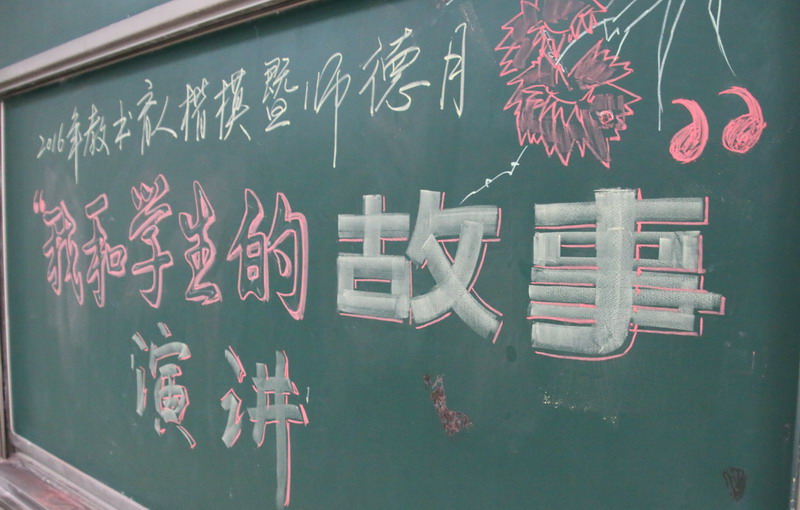 2016年教书育人楷模暨师德月
“我和学生的故事”
演讲